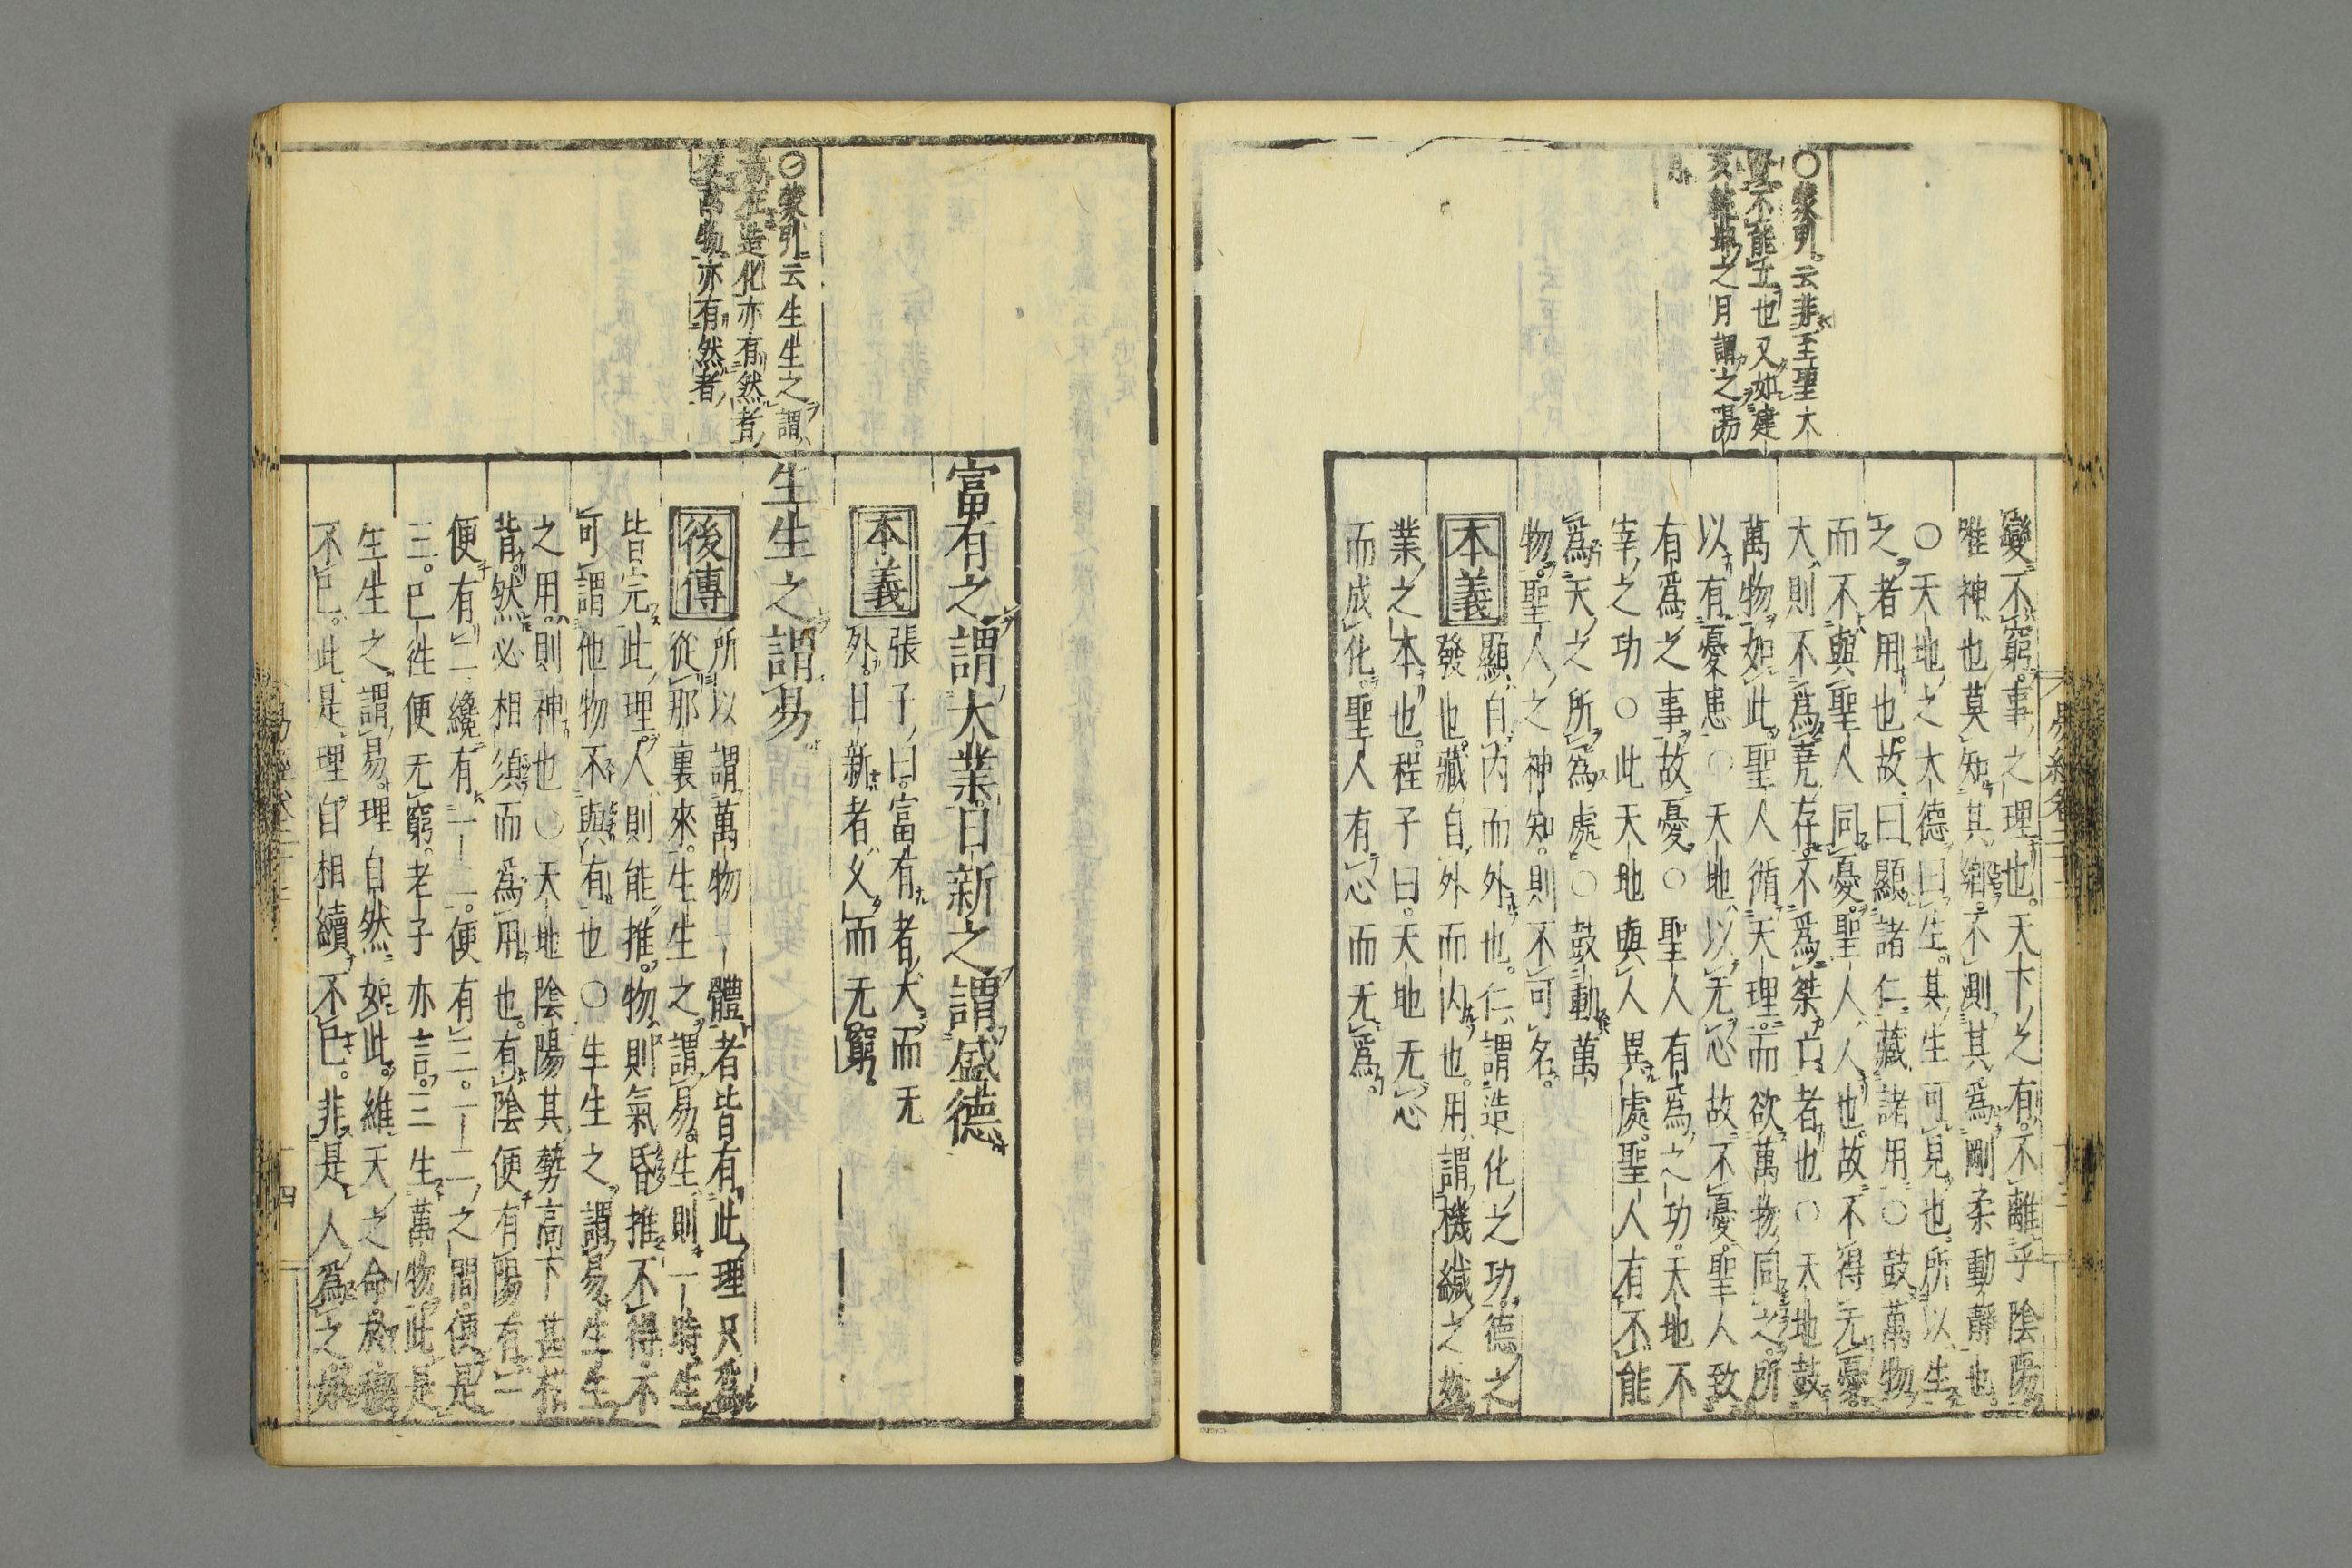 ○蒙引云非至聖大
賢不能立也又如建
亥純坤之月謂之陽
變不窮事之理也天下之有不離乎陰陽
唯神也莫知其鄉不測其爲剛柔動靜也
○天地之大德曰生其生可見也所以生
之者用也故曰顯諸仁藏諸用○鼓萬物
而不與聖人同憂聖人人也故不得无憂
大則不爲堯存不爲桀亡者也○天地鼓
萬物如此聖人循天理而欲萬物同之所
以有憂患○天地以无心故不憂聖人致
有爲之事故憂○聖人有爲之功天地不
宰之功○此天地與人異處聖人有不能
爲天之所爲處○鼓動萬
物聖人之神知則不可名
本義
顯自內而外也仁謂造化之功德之
發也藏自外而內也用謂機緘之妙
業之本也程子曰天地无心
而成化聖人有心而无爲
○蒙引云生生之謂
易在造化亦有然者
在萬物亦有然者
富有之謂大業日新之謂盛德
本義
張子曰富有者大而无
外日新者久而无窮
生生之謂易
後傳
所以謂萬物一體者皆有此理只爲
從那裏來生生之謂易生則一時生
皆完此理人則能推物則氣昏推不得不
可謂他物不與有也○生生之謂易生生
之用則神也○天地陰陽其勢高下甚相
背然必相須而爲用也有陰便有陽有一
便有二纔有一二便有三一二之間便是
三已往便无窮老子亦言三生萬物此是
生生之謂易理自然如此維天之命於穆
不已此是理自相續不已非是人爲之如
易經卷二十
十四